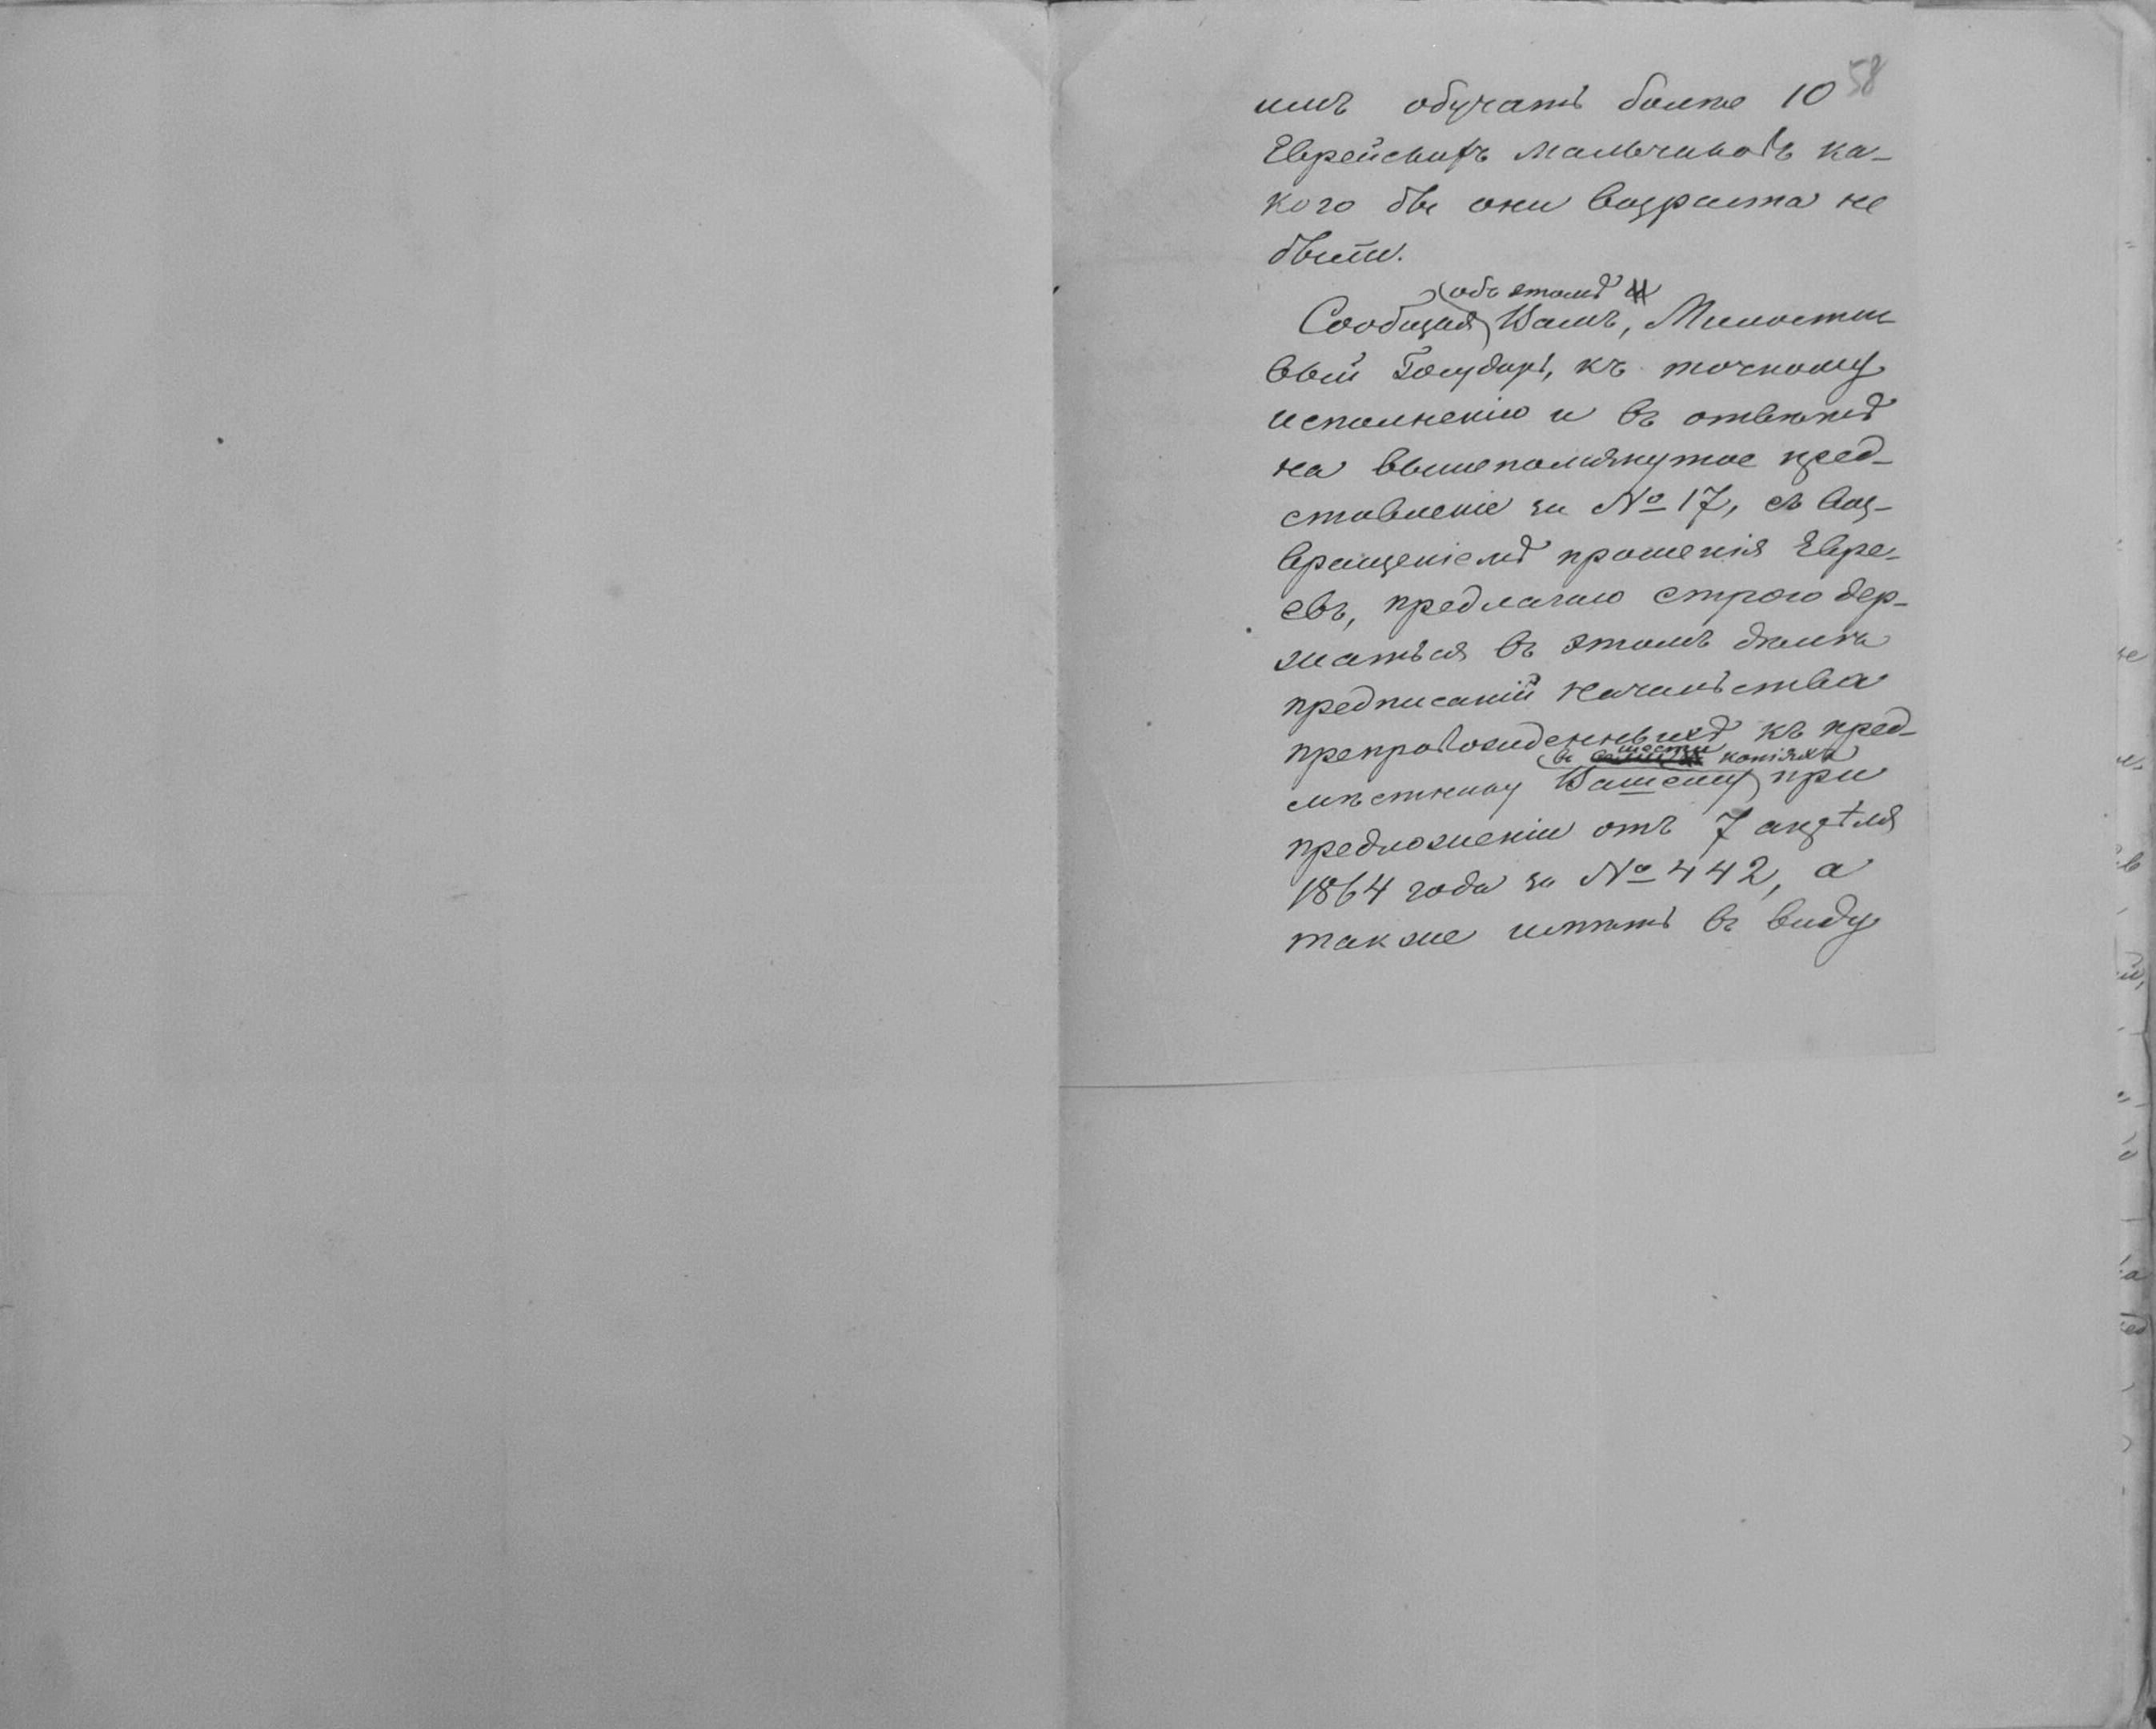 58
имъ обучать болѣе 10
Еврейскихъ мальчиковъ ка-
кого бы они возраста не
были.
объ этомъ
Сообщая Вамъ, Милости
вый Государь, къ точному
исполненію и въ отвѣтъ
на вышепомянутое пред-
ставленіе за № 17, съ воз-
вращеніемъ прошенія Евре-
евъ, предлагаю строго дер-
жаться въ этомъ дѣлѣ
предписаній Начальства
препровожденныхъ къ пред-
въ шести копіяхъ
мѣстнику Вашему при
предложеніи отъ 7
1864 года за № 442, а
также имѣть въ виду